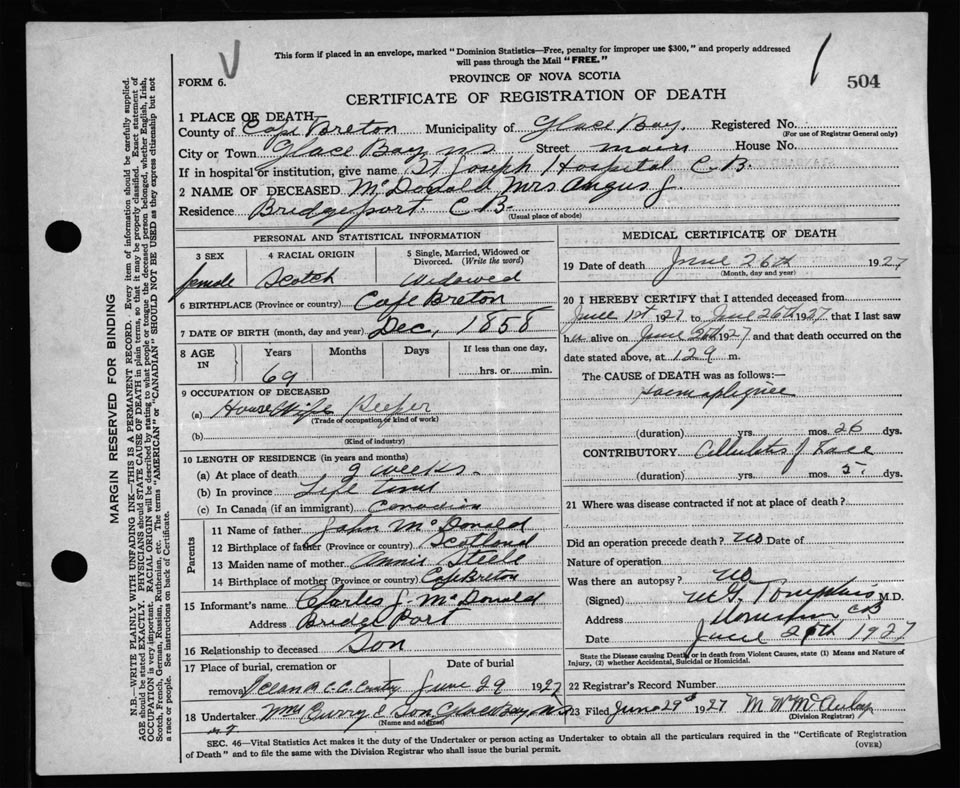 This form if placed in an envelope, marked "Dominion Statistics—Free, penalty for improper use $300," and properly addressed
will pass through the Mail "FREE."
FORM 6.
PROVINCE OF NOVA SCOTIA
504
CERTIFICATE OF REGISTRATION OF DEATH
1 PLACE OF DEATH—
County of Cape Breton Municipality of Glace Bay. Registered No.
(For use of Registrar General only)
City or Town Glace Bay NS Street Main House No.
If in hospital or institution, give name St Joseph Hospital C.B.
2 NAME OF DECEASED McDonald Mrs Angus J.
Residence Bridgeport C.B.
(Usual place of abode)
PERSONAL AND STATISTICAL INFORMATION
3 SEX 4 RACIAL ORIGIN 5 Single, Married, Widowed or Divorced. (Write the word)
female Scotch Widowed
6 BIRTHPLACE (Province or country) Cape Breton
7 DATE OF BIRTH (month, day and year) Dec, 1858
8 AGE IN Years Months Days If less than one day,
69 hrs. or min.
9 OCCUPATION OF DECEASED
(a) House Wife Keeper
(Trade or occupation or kind of work)
(b)
(Kind of industry)
10 LENGTH OF RESIDENCE (in years and months)
(a) At place of death 9 weeks.
(b) In province Life Time
(c) In Canada (if an immigrant) Canadian
Parents
11 Name of father John McDonald
12 Birthplace of father (Province or country) Scotland
13 Maiden name of mother Annie Steele
14 Birthplace of mother (Province or country) Cape Breton
15 Informant's name Charles J. McDonald
Address Bridge Port
16 Relationship to deceased Son
17 Place of burial, cremation or removal Date of burial
June 29 1927
18 Undertaker Wm Curry & Son Glace Bay NS
(Name and address)
MEDICAL CERTIFICATE OF DEATH
19 Date of death June 26th 1927
(Month, day and year)
20 I HEREBY CERTIFY that I attended deceased from
June 1st 1927 to June 26th 1927 that I last saw
alive on June 26th 1927 and that death occurred on the
date stated above, at m.
The CAUSE of DEATH was as follows:—
(duration) yrs. mos. 26 dys.
CONTRIBUTORY Cellulitis of Face
(duration) yrs. mos. 5. dys.
21 Where was disease contracted if not at place of death?
21
Did an operation precede death? No Date of
Nature of operation
Was there an autopsy? no
(Signed) Tompkins M.D.
Address Dominion CB
Date June 26th 1927
State the Disease causing Death, or in death from Violent Causes, state (1) Means and Nature of
Injury, (2) whether Accidental, Suicidal or Homicidal.
22 Registrar's Record Number
23 Filed June 29th 1927
(Division Registrar)
SEC. 46—Vital Statistics Act makes it the duty of the Undertaker or person acting as Undertaker to obtain all the particulars required in the "Certificate of Registration
of Death" and to file the same with the Division Registrar who shall issue the burial permit.
(OVER)
MARGIN RESERVED FOR BINDING
N.B.—WRITE PLAINLY WITH UNFADING INK—THIS IS A PERMANENT RECORD. Every item of information should be carefully supplied.
AGE should be stated EXACTLY. PHYSICIANS should STATE CAUSE OF DEATH in plain terms, so that it may be properly classified. Exact statement of
OCCUPATION is very important. RACIAL ORIGIN will be described by stating to what people or tongue the deceased person belonged, whether English, Irish,
Scotch, French, German, Russian, Ruthenian, etc. The terms "AMERICAN" or "CANADIAN" SHOULD NOT BE USED as they express citizenship but not
a race or people. See instructions on back of Certificate.